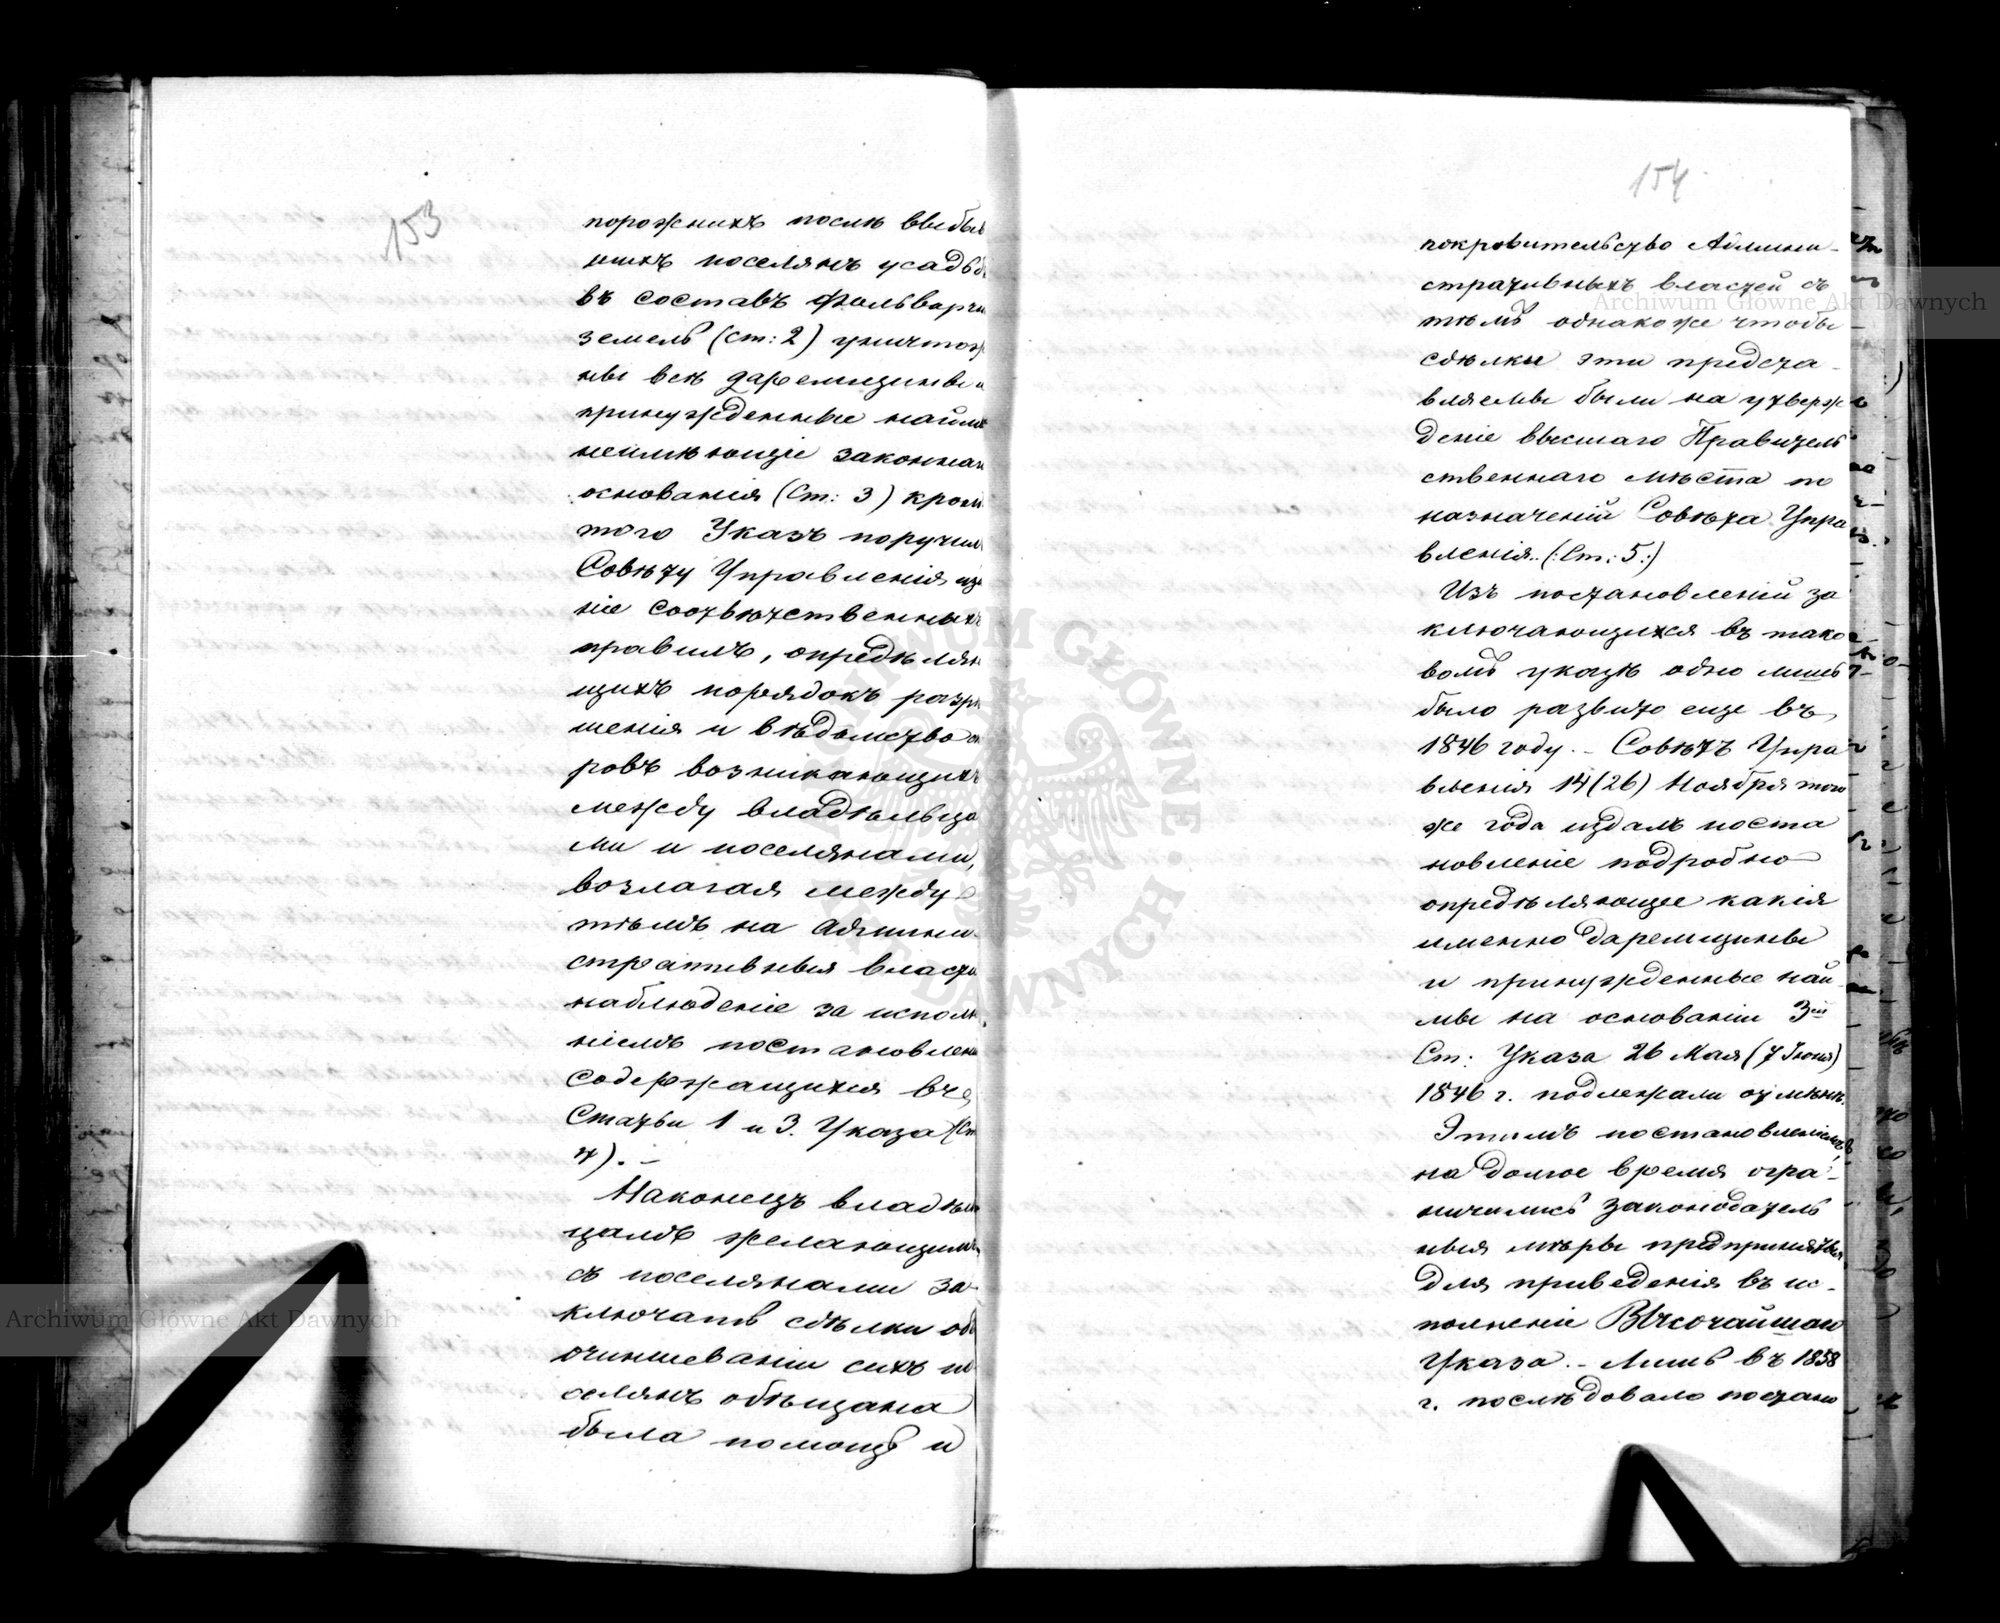 153
порожнихъ послѣ выбыв
шихъ поселянъ усадьб
въ составъ фольварч
земель (ст: 2) уничтож
ны всѣ даремщины и
принужденные наймы
неимѣющіе законнаг
основанія (Ст: 3) кром
того Указъ поручил
Совѣту Управленія изд
ніе соотвѣтственныхъ
правилъ, опредѣляю
щихъ порядокъ разрѣ
шенія и вѣдомство сп
ровъ возникающихъ
между владѣльца
ми и поселянами,
возлагая между
тѣмъ на Админи-
стративныя власти
наблюденіе за исполн
ніемъ постановлен
содержащихся въ
Статьи 1 и 3. Указа (Ст
4). –
Наконецъ владѣль
цамъ желающимъ
съ поселянами за-
ключать сдѣлки объ
очиншеваніи сихъ по
селянъ обѣщана
была помощь и
154
покровительство Админи-
стративныхъ властей съ
тѣмъ однакоже чтобы
сдѣлки эти предста-
вляемы были на утверж
деніе высшаго Правитель
ственнаго мѣста по
назначеніи Совѣта Упра
вленія. (:Ст: 5:)
Изъ постановленій за
ключающихся въ тако
вомъ указѣ одно лишь
было развито еще въ
1846 году. – Совѣтъ Упра
вленія 14 (26) Ноября того
же года издалъ поста
новленіе подробно
опредѣляющее какія
именно даремщины
и принужденные най-
мы на основаніи 3ей
Ст: Указа 26 Мая (7 Іюня)
1846 г. подлежали отмѣнѣ.
Этимъ постановленіемъ
на долгое время огра-
ничились законодатель
ныя мѣры предпринятыя
для приведенія въ ис-
полненіе Высочайшаго
Указа. – Лишь въ 1858
г. послѣдовало постано
Archiwum Główne Akt Dawnych
Archiwum Główne Akt Dawnych
ARCHIWUM GŁÓWNE AKT DAWNYCH